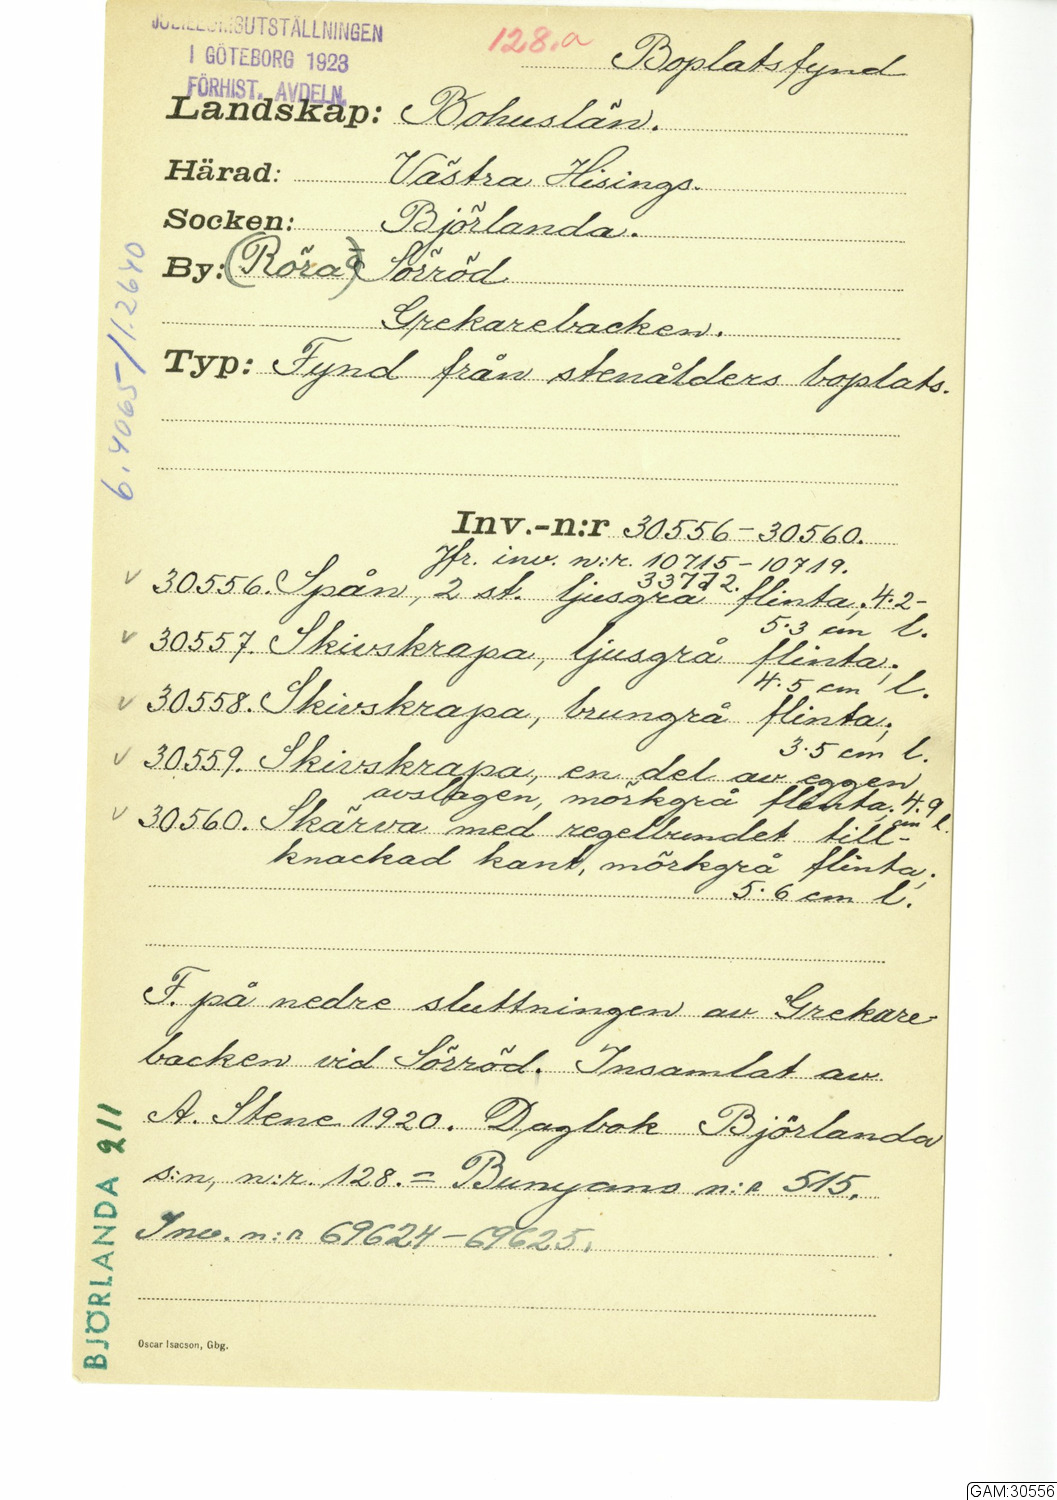 JUBILEUMSUTSTÄLLNINGEN
I GÖTEBORG 1923
FÖRHIST. AVDELN.
128.a
Boplatsfynd
Landskap: Bohuslän.
Härad: Västra Hisings.
Socken: Björlanda.
By: (Röra) Sörröd
Grekarebacken.
Typ: Fynd från stenålders boplats.
Inv.-n:r 30556-30560.
Jfr. inv. n:r. 10715-10719.
33772.
30556. Spån, 2 st. ljusgrå flinta; 4.2-
5.3 cm l.
30557. Skivskrapa, ljusgrå flinta;
4.5 cm l.
30558. Skivskrapa, brungrå flinta;
3.5 cm l.
30559. Skivskrapa, en del av eggen
avslagen, mörkgrå flinta; 4.9 cm l.
30560. Skärva med regelbundet till-
knackad kant, mörkgrå flinta;
5.6 cm l.
F. på nedre sluttningen av Grekare-
backen vid Sörröd. Insamlat av
A. Stene 1920. Dagbok Björlanda
s:n, n:r. 128. = Bunyans n:r 515.
Inv. n:r 69624-69625.
Oscar Isacson, Gbg.
BJÖRLANDA 211
6.4065/1.2640
GAM:30556